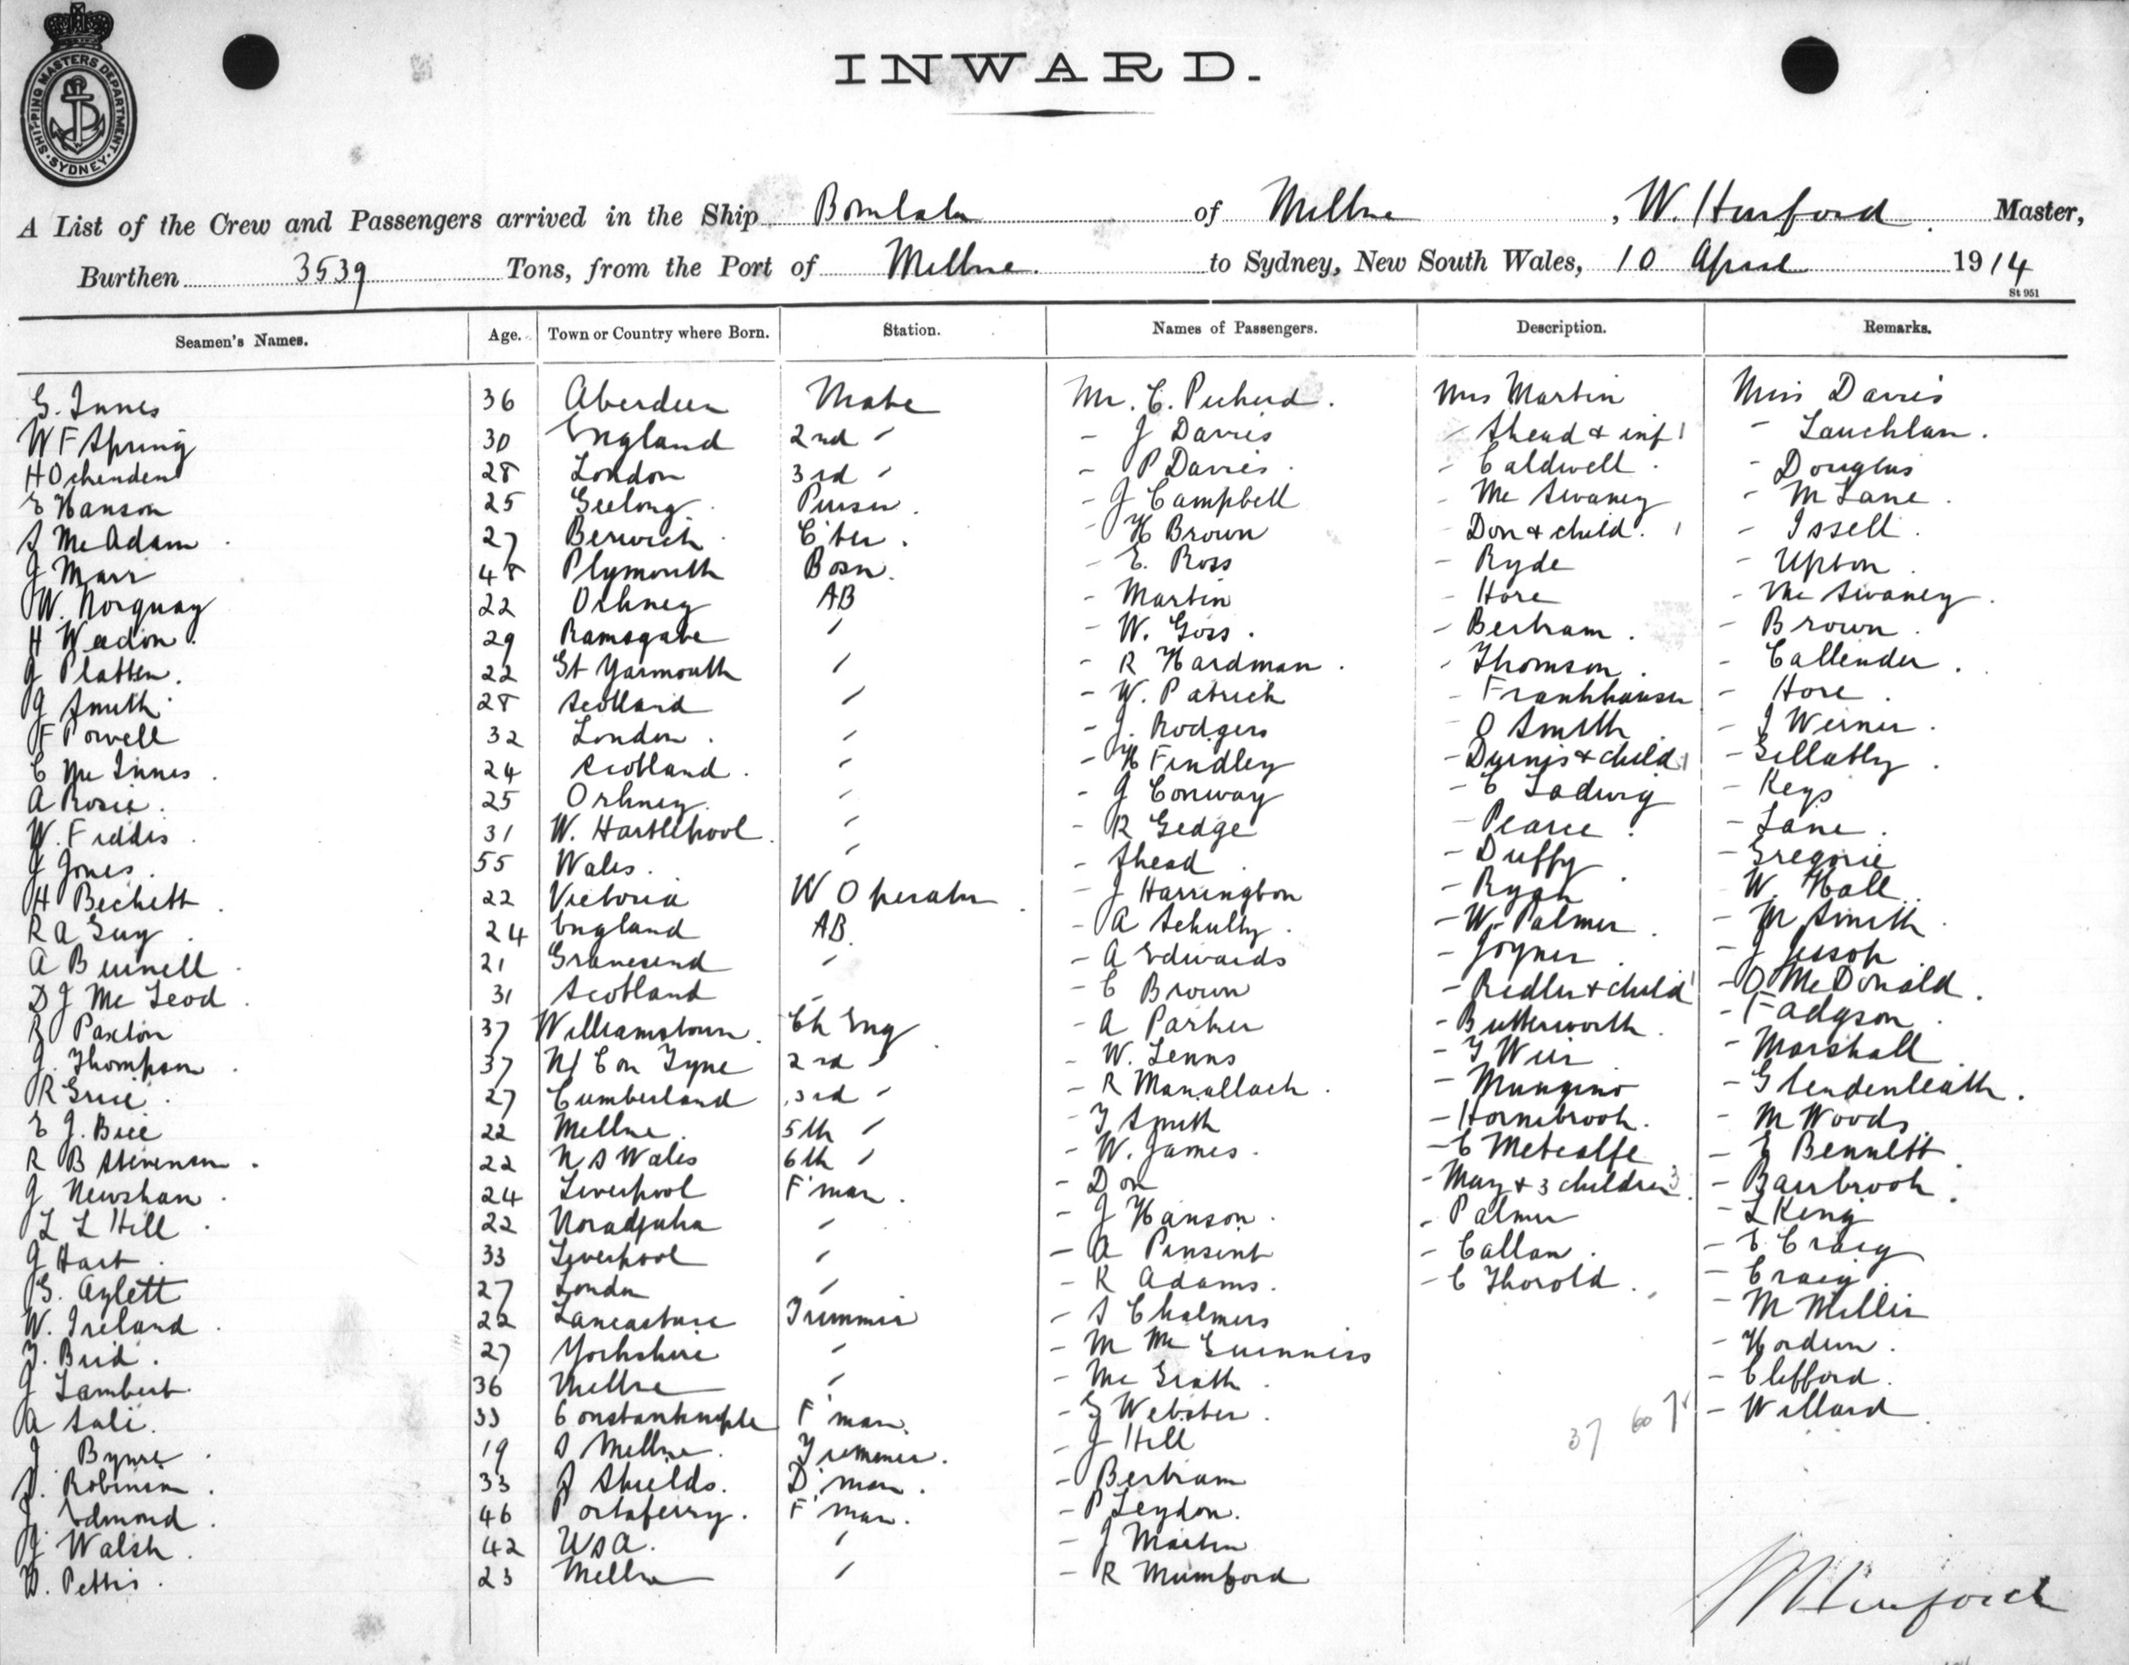 SHIPPING MASTERS DEPARTMENT. SYDNEY
INWARD.
A List of the Crew and Passengers arrived in the Ship Bombala of Mellne, W. Hurford Master,
Burthen 3539 Tons, from the Port of Mellne. to Sydney, New South Wales, 10 April 1914
St 951
Seamen's Names. Age. Town or Country where Born. Station. Names of Passengers. Description. Remarks.
G. Innes 36 Aberdeen Mate Mr. C. Pickerd. Mrs Martin Miss Davies
W F Spring 30 England 2nd " - J Davies - Shead & inf 1 - Lauchlan.
H Ockenden 28 London 3rd " - P Davies. - Caldwell. - Douglas
E Hanson 25 Geelong. Purser. - J Campbell - Mc Swaney - M Lane.
S McAdam. 27 Berwick C'ter. - H Brown - Don & child. 1 - Issell.
J Marr 48 Plymouth Bosn. - E. Ross - Ryde - Upton.
W. Norquay 22 Orkney AB - Martin - Hore - Mc Swaney.
H Weadon. 29 Ramsgate " - W. Goss. - Bertram. - Brown.
J Platten. 22 Gt Yarmouth " - R Hardman. - Thomson. - Callender.
J Smith 28 Scotland " - W. Patrick - Frankhauser - Hore.
F Powell 32 London. " - J. Rodgers - O Smith - J Werner.
C McInnes. 24 Scotland. " - H Findley - & child 1 - Gellatly.
A Rosie. 25 Orkney. " - J Conway - C Ladwig - Keys
W. Fiddis. 31 W. Hartlepool. " - R Gedge - Pearce. - Lane.
J Jones. 55 Wales. " - Shead. - Duffy. - Gregorie
H Beckett. 22 Victoria W Operator. - J Harrington - Ryan - W. Hall.
R A Guy. 24 England AB. - A Schultz. - W. Palmer. - M Smith.
A Burnell. 21 Gravesend " - A Edwards - Joyner. - J Jessop.
D J McLeod. 31 Scotland " - C Brown - Redler & child 1 - O McDonald.
R Paxton 37 Williamstown. Ch Eng. - A Parker - Butterworth. - Fadgson.
J. Thompson. 37 N/C on Tyne 2nd " - W. Lenns - T Weir - Marshall.
R Grice. 27 Cumberland 3rd " - R Manallack. - Mangino - Glendenleath.
E J. Bice 22 Mellne. 5th " - T Smith - Hornibrook. - M Woods.
R B Stevenson. 22 N S Wales 6th " - W. James. - C Metcalfe - E Bennett.
J Newsham. 24 Liverpool F'man. - Don - May & 3 children 3 - Barbrook.
L L Hill. 22 Noradjuha " - J Hanson. - Palmer - L King
J Hart. 33 Liverpool " - A Pinsent - Callan. - E Craig
G. Aylett 27 London " - R Adams. - C Thorold. - Craig.
W. Ireland. 22 Lancashire Trimmer - S Chalmers - M Miller
T. Brid. 27 Yorkshire " - M McGuinness - Hordern.
J Lambert. 36 Mellne " - McGrath. - Clifford.
A Sali. 33 Constantinople F'man. - G Webster. 37 60 - Willard.
J. Byrne. 19 S Mellne. Trimmer. - J Hill
D. Robinson. 33 S Shields. D'man. - Bertram
J. Edmond. 46 Portaferry. F'man. - P Leydon.
J. Walsh. 42 USA. " - J Martin
W. Pettis. 23 Mellne " - R Mumford
W Hurford